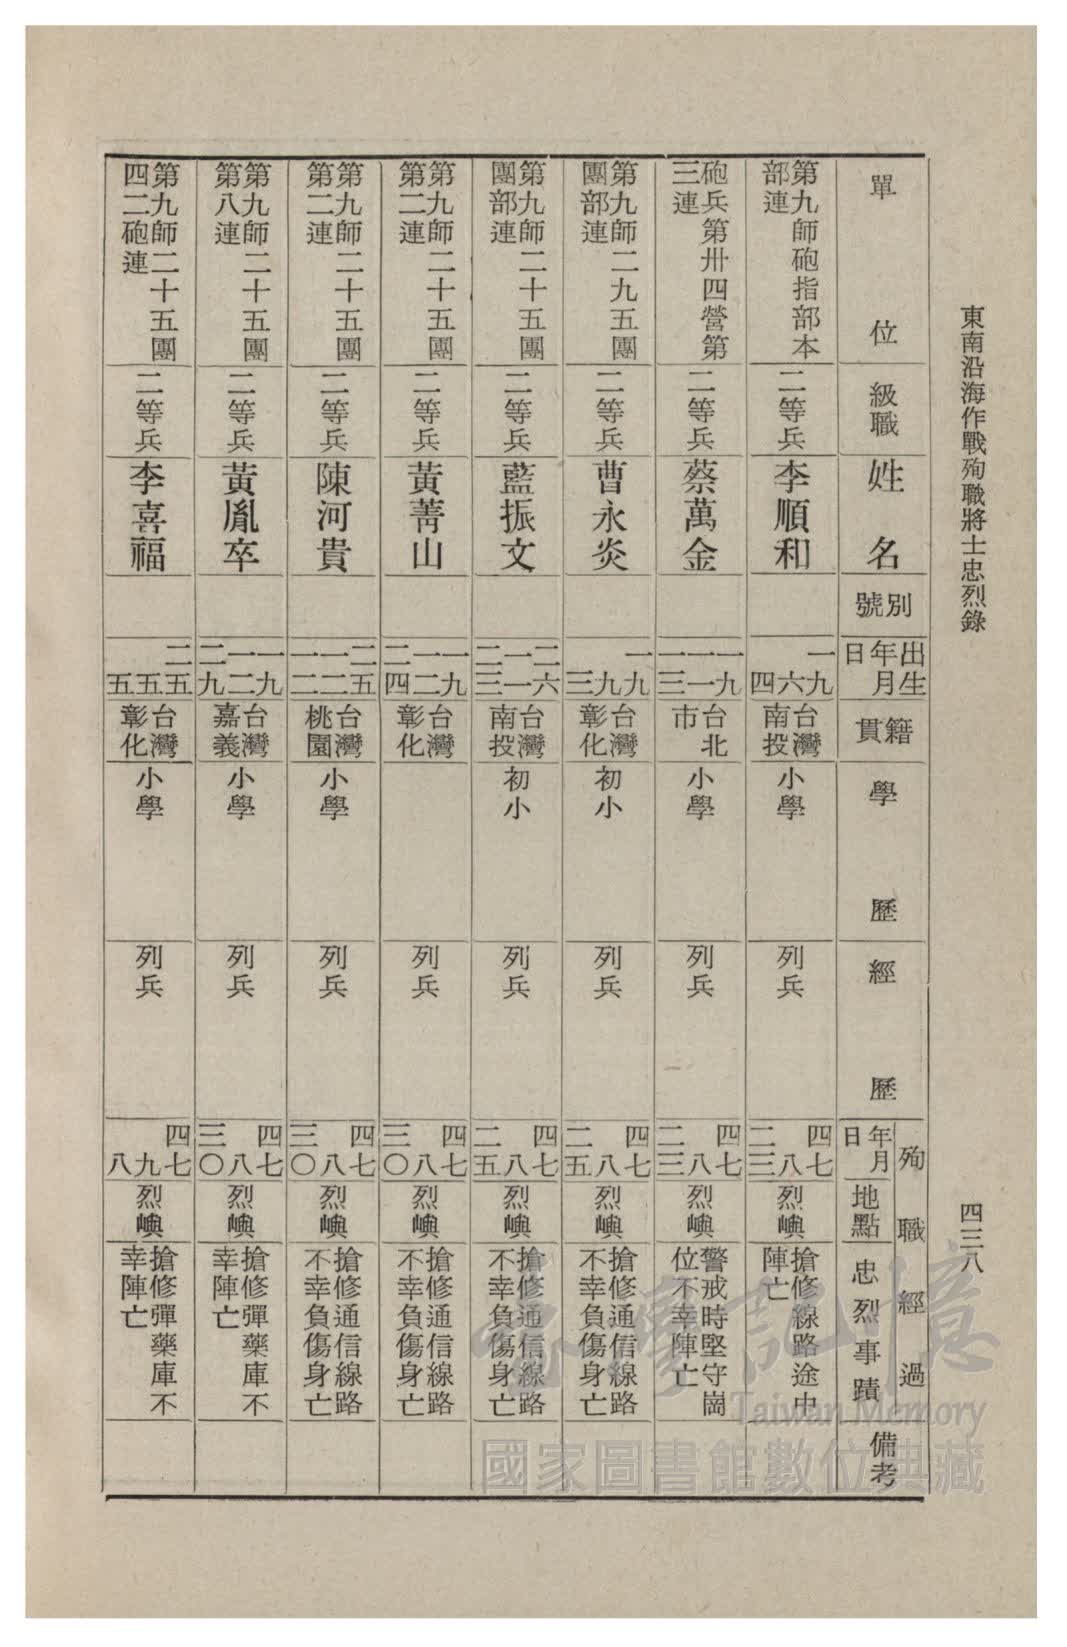 東南沿海作戰殉職將士忠烈錄
四三八
單位
級職
姓名
別號
出生
年月
日
籍貫
學歷
經歷
殉職經過
年月
日
地點
忠烈事蹟
備考
第九師砲指部本
部連
二等兵
李順和
一九
六
四
台灣
南投
小學
列兵
四七
八
二三
烈嶼
搶修線路途中
陣亡
砲兵第卅四營第
三連
二等兵
蔡萬金
一九
一一
一三
台北
市
小學
列兵
四七
八
二三
烈嶼
警戒時堅守崗
位不幸陣亡
第九師二九五團
團部連
二等兵
曹永炎
一九
九
三
台灣
彰化
初小
列兵
四七
八
二五
烈嶼
搶修通信線路
不幸負傷身亡
第九師二十五團
團部連
二等兵
藍振文
二六
一一
二三
台灣
南投
初小
列兵
四七
八
二五
烈嶼
搶修通信線路
不幸負傷身亡
第九師二十五團
第二連
二等兵
黃菁山
一九
一二
二四
台灣
彰化
列兵
四七
八
三〇
烈嶼
搶修通信線路
不幸負傷身亡
第九師二十五團
第二連
二等兵
陳河貴
二五
一二
一二
台灣
桃園
小學
列兵
四七
八
三〇
烈嶼
搶修通信線路
不幸負傷身亡
第九師二十五團
第八連
二等兵
黃胤卒
一九
一二
二九
台灣
嘉義
小學
列兵
四七
八
三〇
烈嶼
搶修彈藥庫不
幸陣亡
第九師二十五團
四二砲連
二等兵
李喜福
二五
五
五
台灣
彰化
小學
列兵
四七
九
八
烈嶼
搶修彈藥庫不
幸陣亡
臺灣記憶
Taiwan Memory
國家圖書館數位典藏